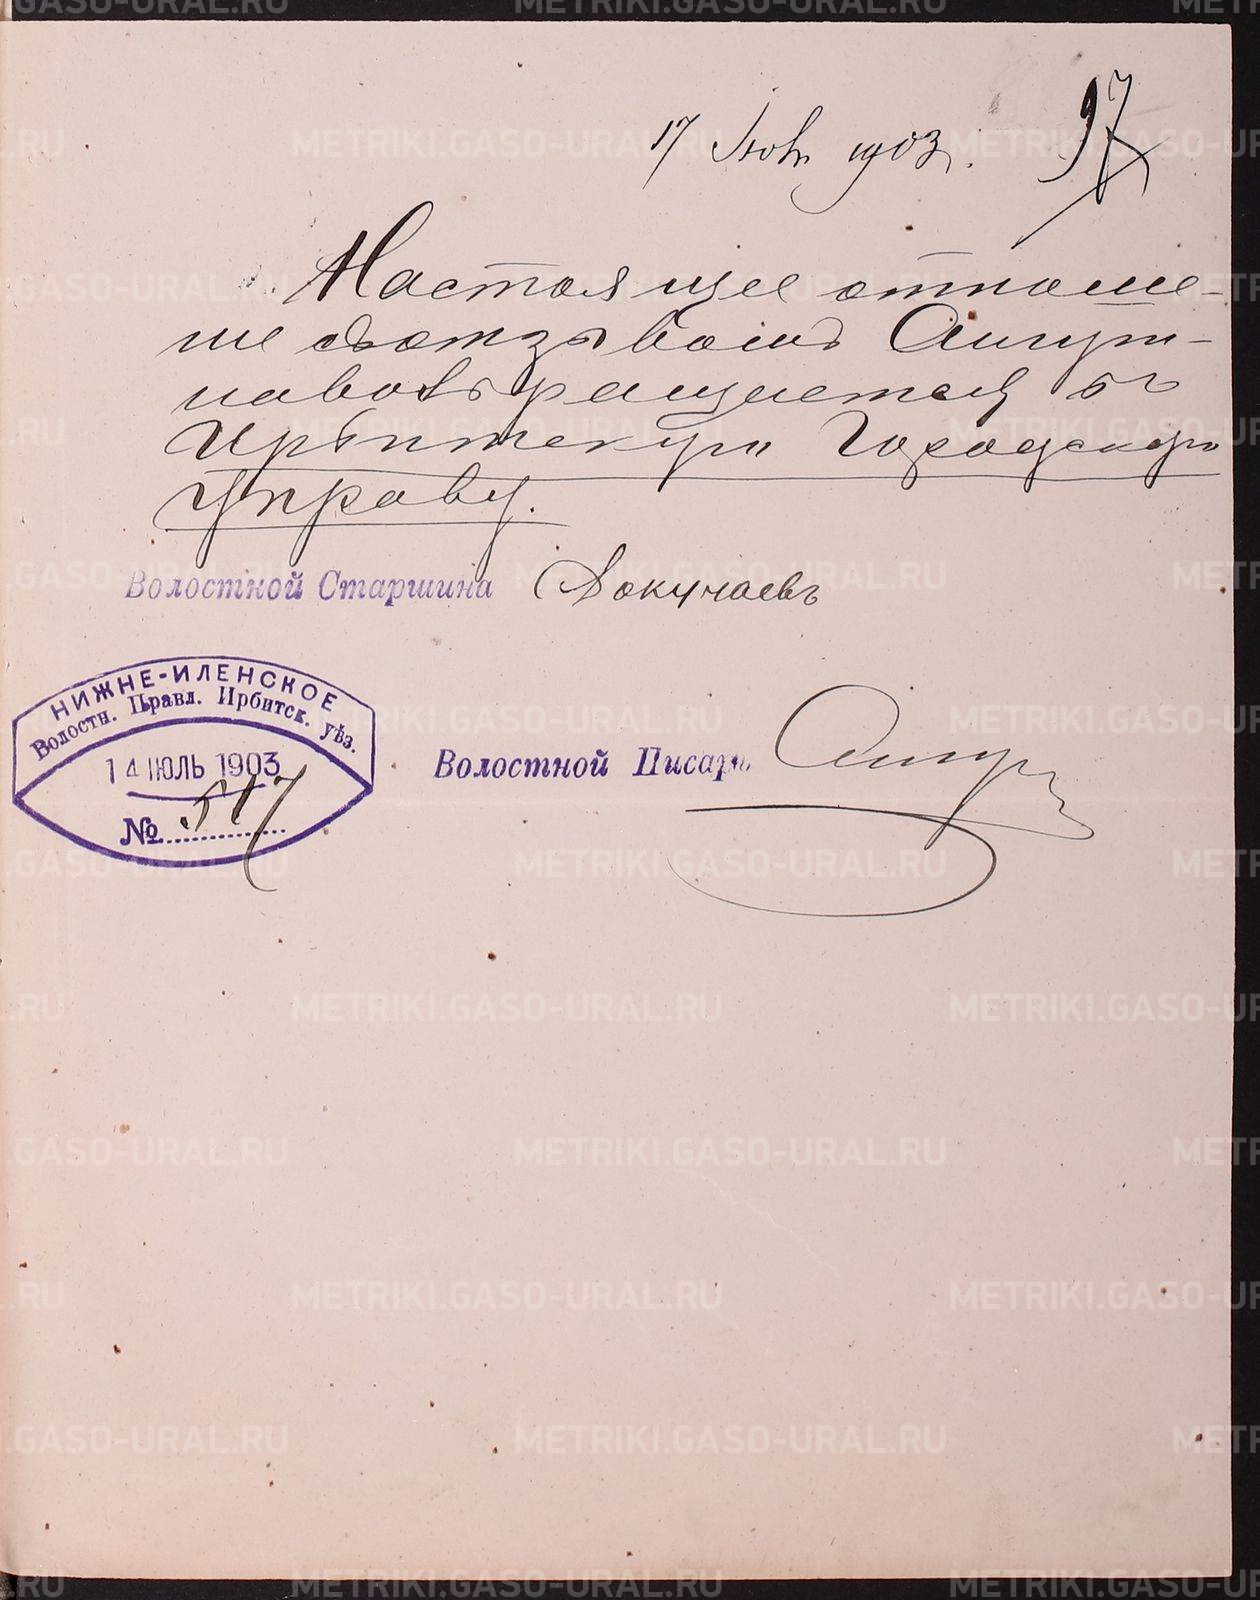 97
17 Іюл. 1903.
Настоящее отноше-
ніе съ отзывомъ
возвращается въ
Ирбитскую Городскую
Управу.
Волостной Старшина Докучаевъ
НИЖНЕ-ИЛЕНСКОЕ
Волостн. Правл. Ирбитск. уѣз.
14 ІЮЛЬ 1903
№ 517
Волостной Писарь
METRIKI.GASO-URAL.RU